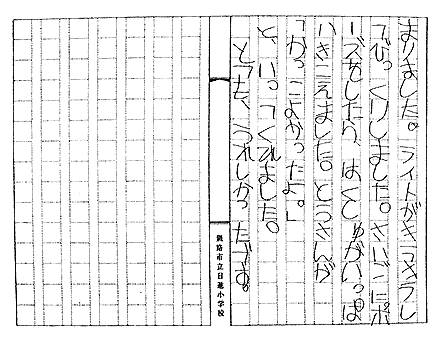 まりました。ライトがキラキラし
てびっくりしました。さいごにポ
ーズをしたら、はくしゅがいっぱ
いきこえました。とうさんが
「かっこよかったよ。」
と、いってくれました。
とても、うれしかったです。
釧路市立日進小学校